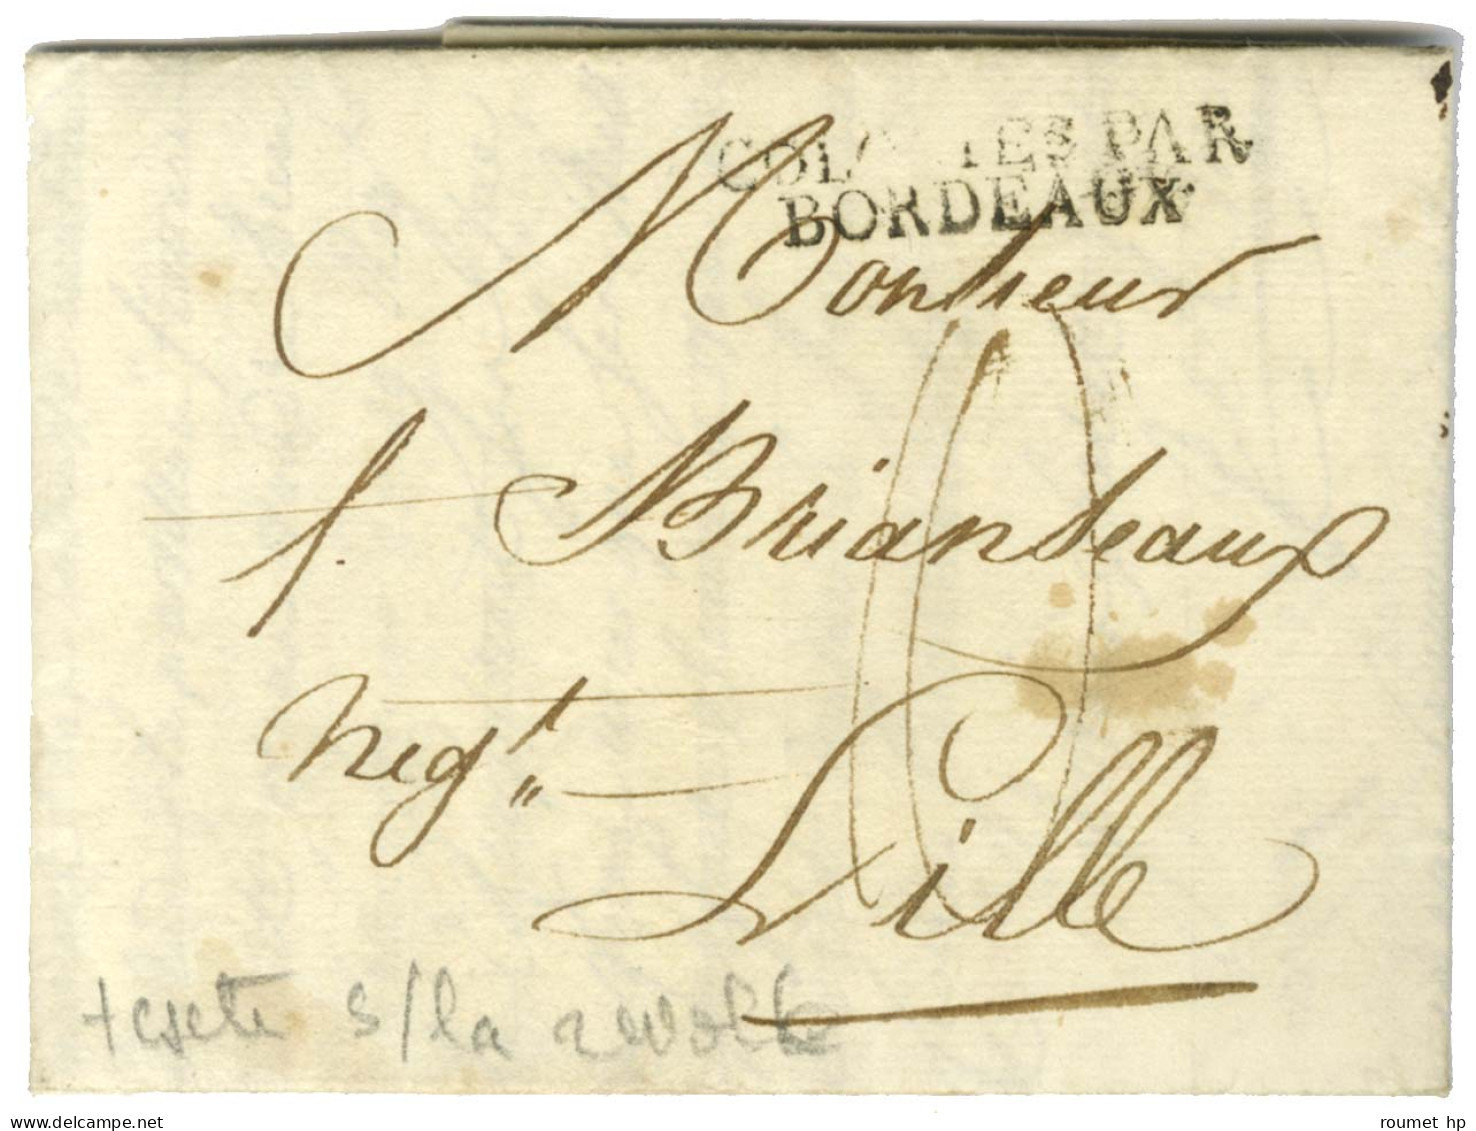 COLONIES PAR
BORDEAUX
Monsieur
f. Briandeaux
Negt.
Lille
+ texte s/la révolte
www.delcampe.net
roumet hp